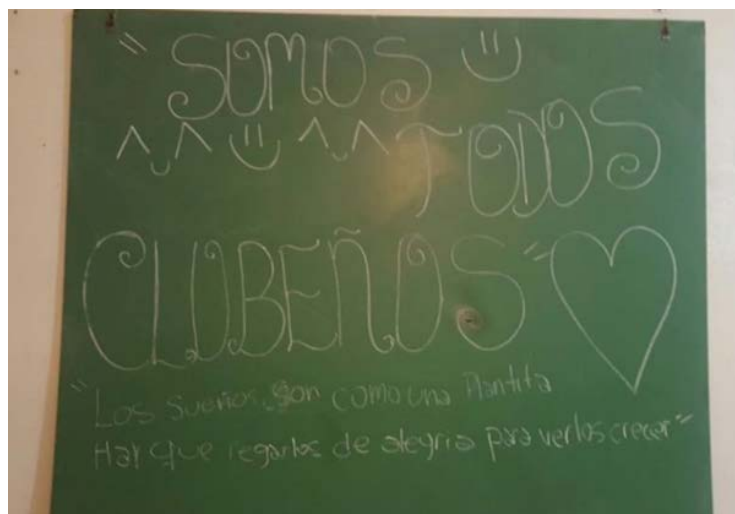 "SOMOS
TODOS
CLOBEÑOS"
"Los sueños son como una Plantita
Hay que regarlos de alegria para verlos crecer"